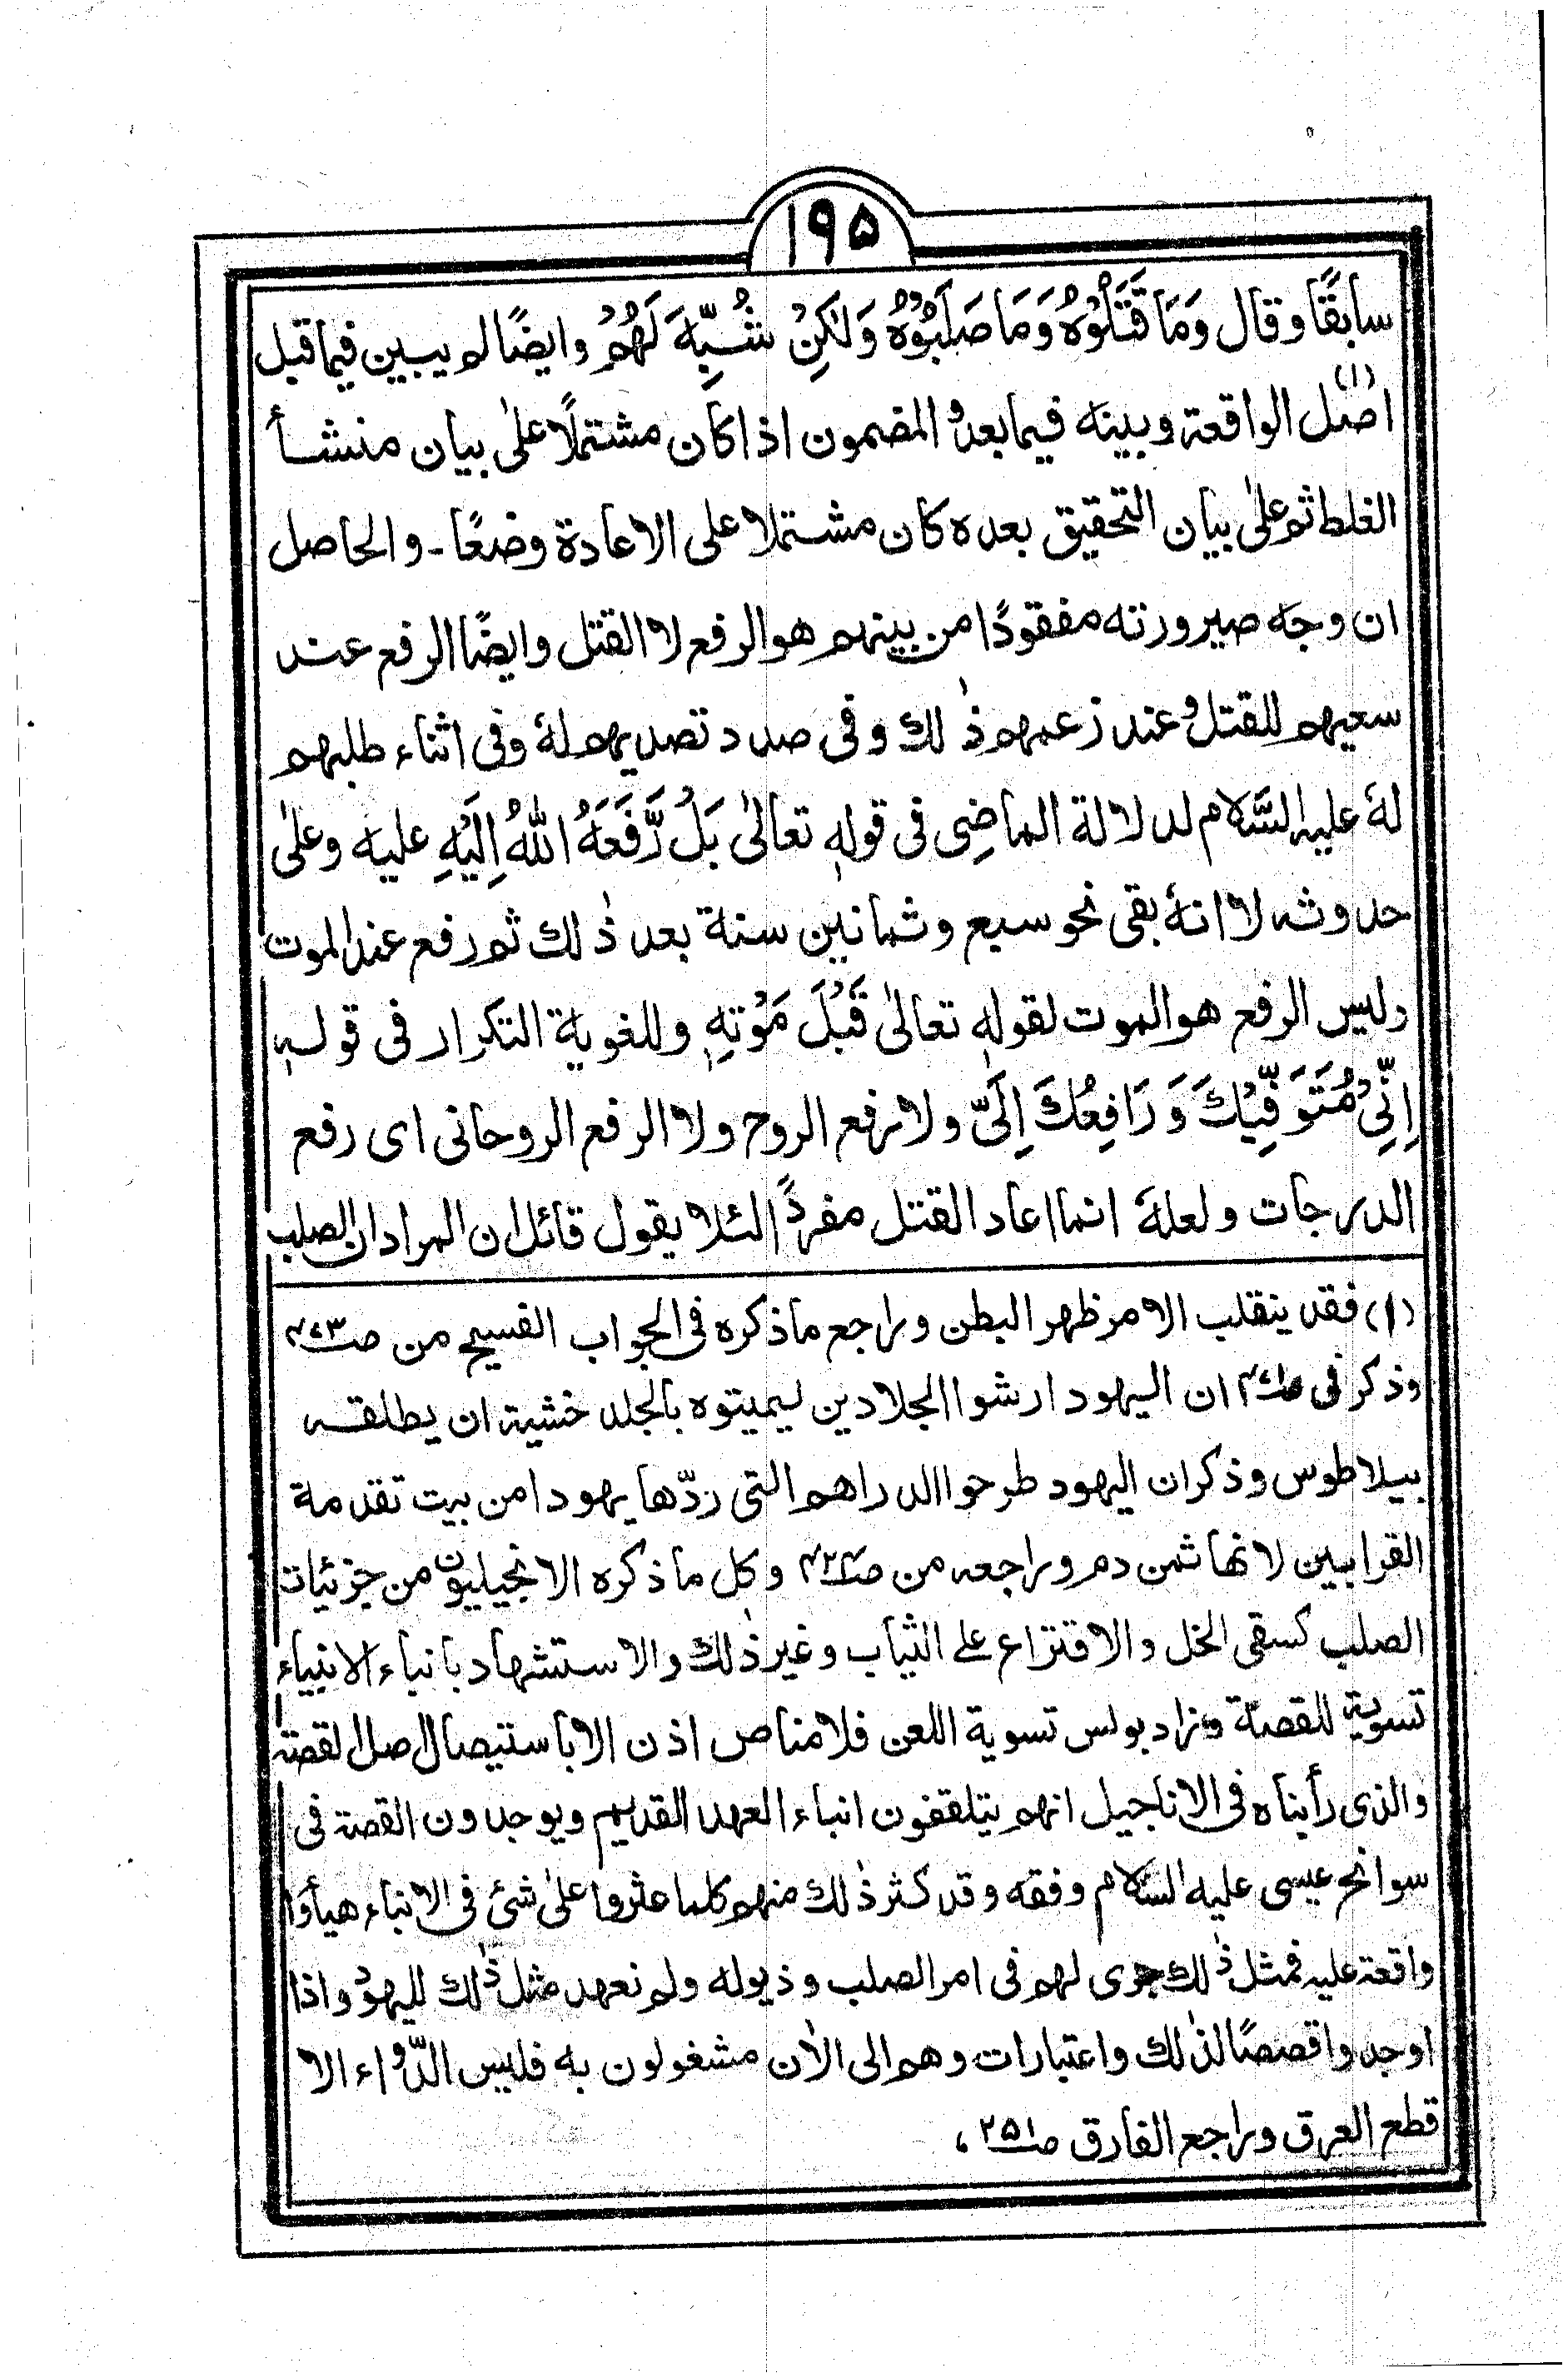 ١٩٥
سابقًا وقال وَمَا قَتَلُوْهُ وَمَا صَلَبُوْهُ وَلٰكِنْ شُبِّهَ لَهُمْ وايضًا لم يبين فيما قبل
(١)
اصل الواقعة وبينه فيما بعد و المضمون اذا كان مشتملًا علىٰ بيان منشأ
الغلط ثم علىٰ بيان التحقيق بعده كان مشتملا على الاعادة وضعًا ـ والحاصل
ان وجه صيرورته مفقودًا من بينهم هو الرفع لا القتل وايضًا الرفع عند
سعيهم للقتل و عند زعمهم ذٰلك وفى صدد تصديهم لهٗ وفى اثناء طلبهم
لهٗ عليه السَّلام لدلالة الماضِى فى قولهٖ تعالىٰ بَلْ رَّفَعَهُ اللّٰهُ اِلَيْهِ عليه وعلىٰ
حدوثه لا انهٗ بقى نحو سبع وثمانين سنة بعد ذٰلك ثم رفع عند الموت
وليس الرفع هو الموت لقولهٖ تعالىٰ قَبْلَ مَوْتِهٖ وللغوية التكرار فى قولهٖ
اِنِّىْ مُتَوَفِّيْكَ وَرَافِعُكَ اِلَىَّ ولا رفع الروح ولا الرفع الروحانى اى رفع
الدرجات ولعلهٗ انما اعاد القتل مفردًا لئلا يقول قائل ان المراد ان الصلب
(١) فقد ينقلب الامر ظهر البطن وراجع ما ذكره فى الجواب الفسيح من صـ
وذكر فى صـ ان اليهود ارشوا الجلادين ليميتوه بالجلد خشية ان يطلقه
بيلاطوس وذكر ان اليهود طرحوا الدراهم التى ردّها يهودا من بيت تقدمة
القرابين لانها ثمن دم وراجعه من صـ وكل ما ذكره الانجيليون من جزئيات
الصلب كسقى الخل والاقتراع على الثياب وغير ذٰلك والاستشهاد بانباء الانبياء
تسوية للقصة وزاد بولس تسوية اللعن فلا مناص اذن الا باستيصال اصل القصة
والذى رأيناه فى الاناجيل انهم يتلقفون انباء العهد القديم ويوجدون القصة فى
سوانح عيسى عليه السّلام وفقه وقد كثر ذٰلك منهم كلما عثروا علىٰ شئ فى الانباء هيأوا
واقعة عليه فمثل ذٰلك جرى لهم فى امر الصلب وذيوله ولم نعهد مثل ذٰلك لليهود واذا
اوجدوا قصصًا لذٰلك واعتبارات وهم الى الاٰن مشغولون به فليس الدّواء الا
قطع العرق وراجع الفارق صـ٢٥١،